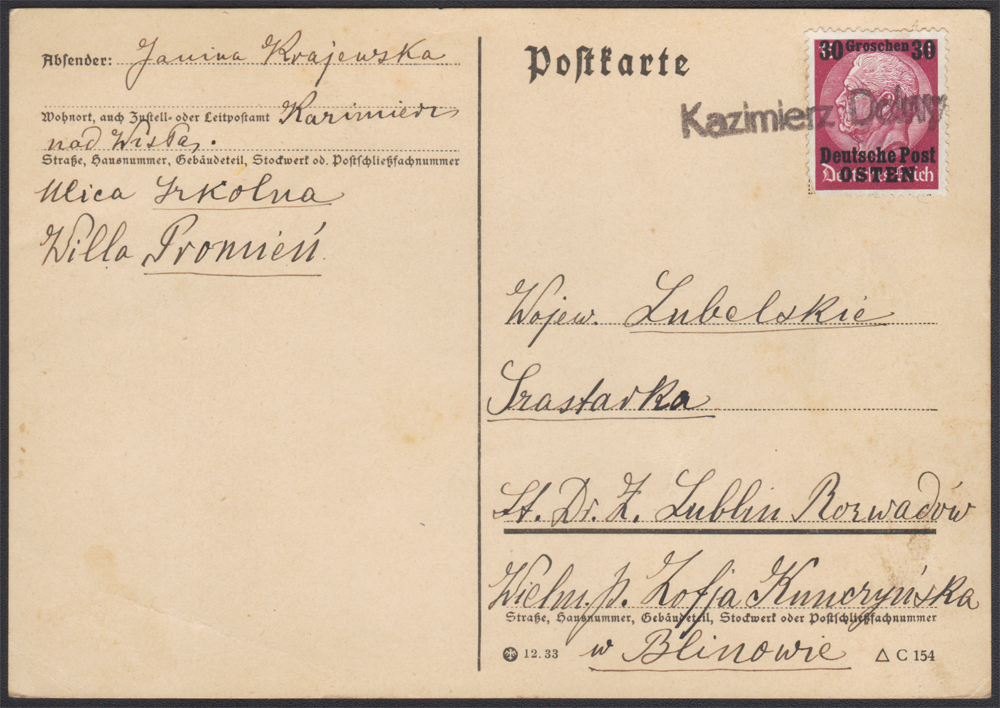 Absender: Janina Krajewska
Wohnort, auch Zustell- oder Leitpostamt Kazimierz
nad Wisłą.
Straße, Hausnummer, Gebäudeteil, Stockwerk od. Postschließfachnummer
Ulica Szkolna
Willa Promień
Postkarte
30 Groschen 30
Deutsche Post
OSTEN
Deutsches Reich
Kazimierz Dolny
Wojew. Lubelskie
Szastarka
St. Dr. Ż. Lublin Rozwadów
Wielm. p. Zofja Kunczyńska
Straße, Hausnummer, Gebäudeteil, Stockwerk oder Postschließfachnummer
w Blinowie
12. 33
C 154